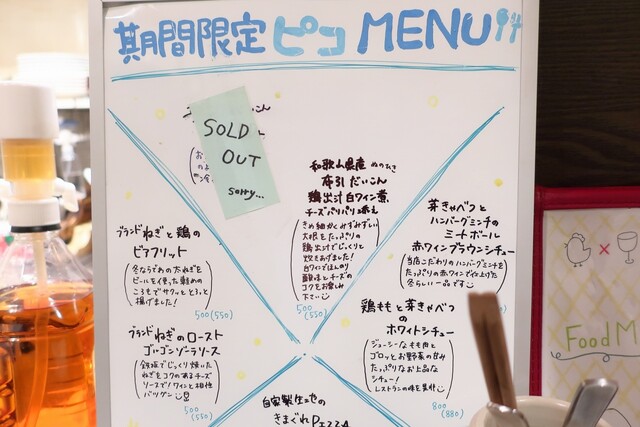 期間限定 ピコ MENU
SOLD
OUT
sorry...
和歌山県産 ぬのびき
布引だいこん
鶏出汁白ワイン煮
チーズパリパリ添え
きめ細かくみずみずしい
大根をたっぷりの
鶏出汁でじっくりと
炊きあげました!
白ワインでほんのり
酸味とチーズの
コクをお楽しみ
下さい
500(550)
ブランドねぎと鶏の
ビアフリット
冬ならではの太ねぎを
ビールを使った軽めの
ころもでサクッととろっと
揚げました!
500(550)
芽きゃべつと
ハンバーグミンチの
ミートボール
赤ワインブラウンシチュー
当店こだわりのハンバーグミンチを
たっぷりの赤ワインで仕上げた
冬らしい一品です
ブランドねぎのロースト
ゴルゴンゾーラソース
鉄板でじっくり焼いた
ねぎをコクのあるチーズ
ソースで!ワインと相性
バツグン
500(550)
鶏ももと芽きゃべつ
の
ホワイトシチュー
ジューシーなもも肉と
ゴロッとお野菜の甘み
たっぷりなお上品な
シチュー!
レストランの味を是非
800
(880)
自家製生地の
きまぐれPIZZA
Food M